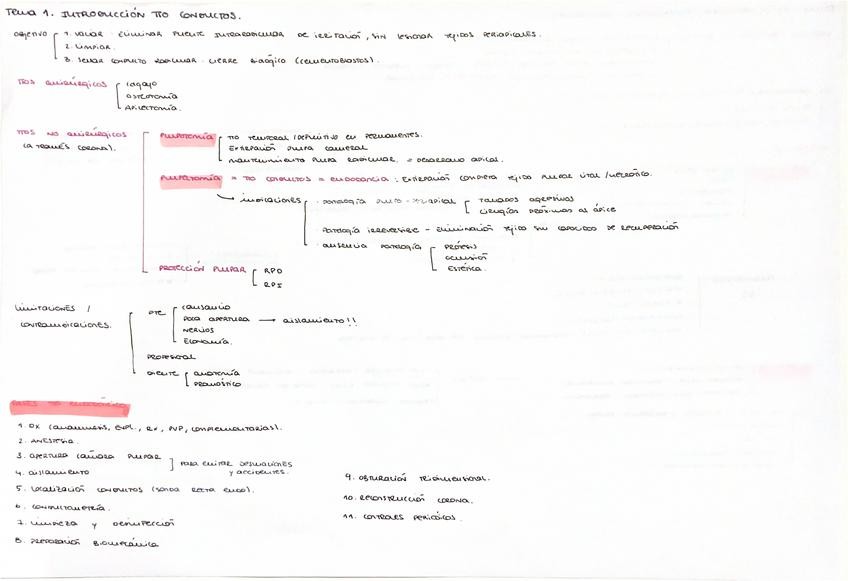 TEMA 1. INTRODUCCIÓN TTO CONDUCTOS.
OBJETIVO 1. VACIAR · ELIMINAR FUENTE INTRARADICULAR DE IRRITACIÓN, SIN LESIONAR TEJIDOS PERIAPICALES.
2. LIMPIAR.
3. SELLAR CONDUCTO RADICULAR · CIERRE BIOLÓGICO (CEMENTOBLASTOS).
TTOS QUIRÚRGICOS LEGRADO
OSTEOTOMÍA
APICECTOMÍA.
TTOS NO QUIRÚRGICOS
(A TRAVÉS CORONA).
PULPOTOMÍA TTO TEMPORAL / DEFINITIVO EN PERMANENTES.
EXTIRPACIÓN PULPA CAMERAL
MANTENIMIENTO PULPA RADICULAR. = DESARROLLO APICAL.
PULPECTOMÍA = TTO CONDUCTOS = ENDODONCIA : EXTIRPACIÓN COMPLETA TEJIDO PULPAR VITAL / NECRÓTICO.
INDICACIONES · PATOLOGÍA PULPO - PERIAPICAL TALLADOS AGRESIVOS
CIRUGÍAS PRÓXIMAS AL ÁPICE
· PATOLOGÍA IRREVERSIBLE - ELIMINACIÓN TEJIDO SIN CAPACIDAD DE RECUPERACIÓN
· AUSENCIA PATOLOGÍA PRÓTESIS
OCLUSIÓN
ESTÉTICA.
PROTECCIÓN PULPAR RPD
RPI
LIMITACIONES /
CONTRAINDICACIONES.
PTE CANSANCIO
POCA APERTURA → AISLAMIENTO!!
NERVIOS
ECONOMÍA.
PROFESIONAL
DIENTE ANATOMÍA
PRONÓSTICO
FASES TTO ENDODÓNCICO
1. DX (ANAMNESIS, EXPL., RX, PVP, COMPLEMENTARIAS).
2. ANESTESIA.
3. APERTURA CÁMARA PULPAR
4. AISLAMIENTO
PARA EVITAR DESVIACIONES
Y ACCIDENTES.
5. LOCALIZACIÓN CONDUCTOS (SONDA RECTA ENDO).
6. CONDUCTOMETRÍA.
7. LIMPIEZA Y DESINFECCIÓN
8. PREPARACIÓN BIOMECÁNICA
9. OBTURACIÓN TRIDIMENSIONAL.
10. RECONSTRUCCIÓN CORONA.
11. CONTROLES PERIÓDICOS.